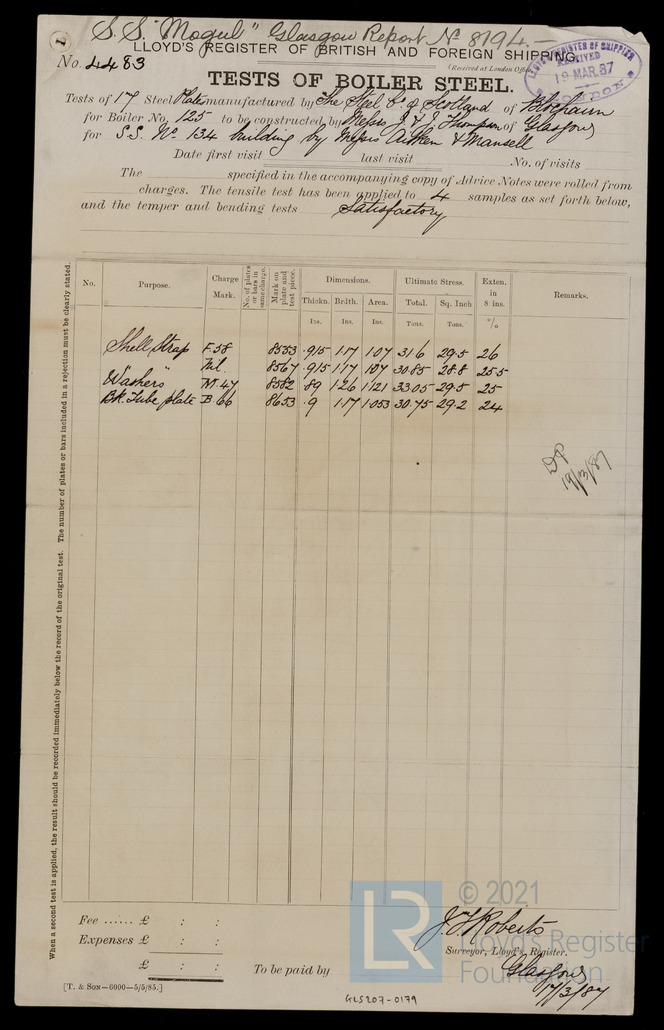 1
S.S. "Mogul" Glasgow Report No 8194.—
LLOYD'S REGISTER OF BRITISH AND FOREIGN SHIPPING.
No. 4483
(Received at London Office
LLOYD'S REGISTER OF SHIPPING
RECEIVED
19 MAR. 87
LONDON
TESTS OF BOILER STEEL.
Tests of 17 Steel Plates manufactured by The Steel Co. of Scotland of Blochairn
for Boiler No. 125 to be constructed by Messrs J. & J. Thompson of Glasgow
for S.S. No. 134 building by Messrs Aitken & Mansell
Date first visit last visit No. of visits
The specified in the accompanying copy of Advice Notes were rolled from
charges. The tensile test has been applied to 4 samples as set forth below,
and the temper and bending tests Satisfactory
No. Purpose. Charge Mark. No. of plates or bars in same charge. Mark on plate and test piece. Dimensions. Ultimate Stress. Exten. in 8 ins. Remarks.
Thickn. Brdth. Area. Total. Sq. Inch
Ins. Ins. Ins. Tons. Tons. %
Shell Strap F.58 8553 .915 1.17 1.07 31.6 29.5 26
" Nil. 8567 .915 1.17 1.07 30.85 28.8 25.5
Washers M.47 8582 .89 1.26 1.121 33.05 29.5 25
Bk. Tube plate B.66 8653 .9 1.17 1.053 30.75 29.2 24
19/3/87
When a second test is applied, the result should be recorded immediately below the record of the original test. The number of plates or bars included in a rejection must be clearly stated.
Fee ...... £ : :
Expenses £ : :
£ : :
To be paid by
J. H. Roberts
Surveyor, Lloyd's Register.
Glasgow
17/3/87
[T. & Son—6000—5/5/85.]
GLS207-0179
LR
© 2021
Lloyd's Register
Foundation